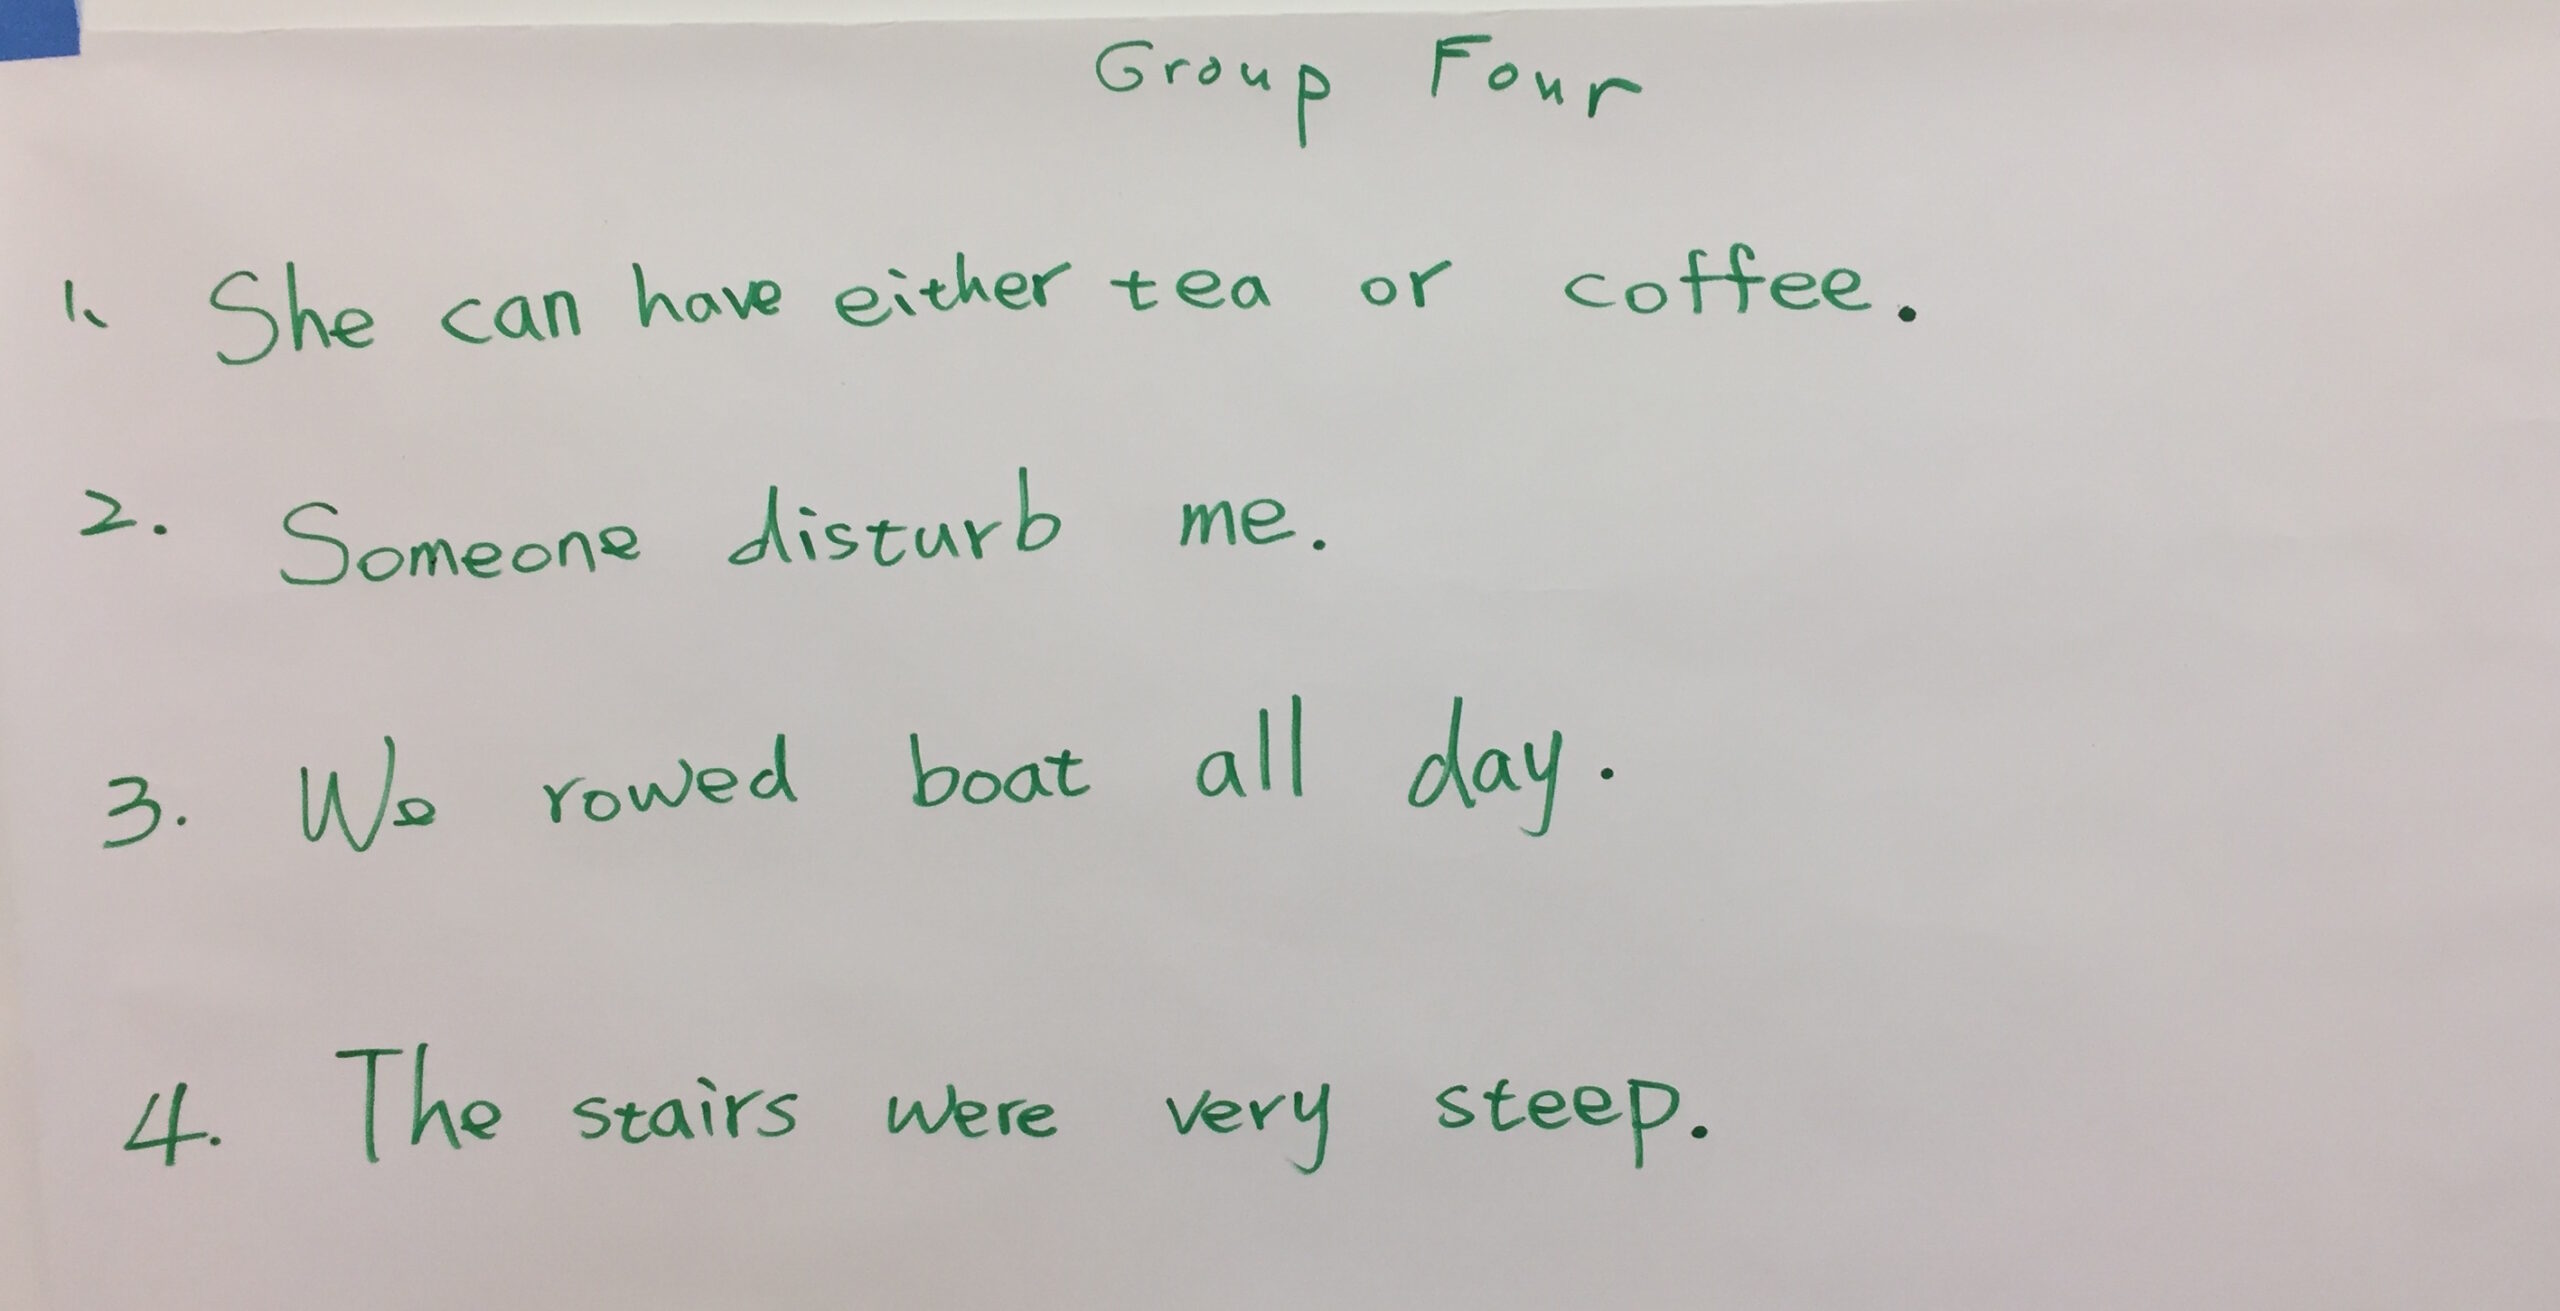 Group Four
1. She can have either tea or coffee.
2. Someone disturb me.
3. We rowed boat all day.
4. The stairs were very steep.